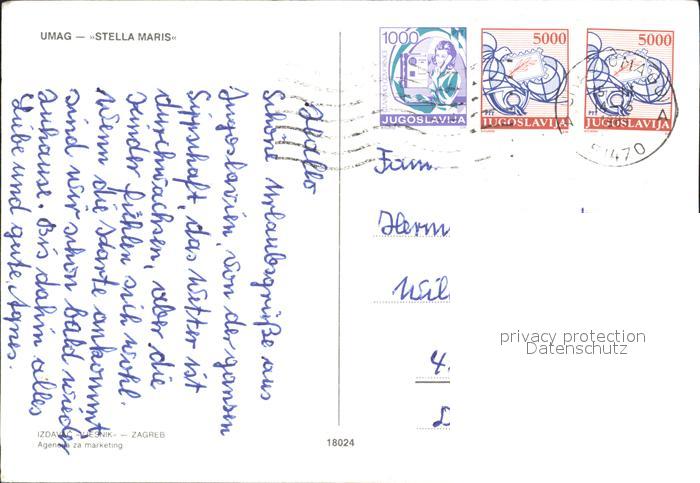 UMAG — »STELLA MARIS«
Hallo
Schöne Urlaubsgrüße aus
Jugoslavien, von der ganzen
Sippschaft, das Wetter ist
durchwachsen, aber die
Kinder fühlen sich wohl.
Wenn die Karte ankommt
sind wir schon bald wieder
zuhause. Bis dahin alles
Liebe und gute, Agnes.
IZDAVAČ »VJESNIK« — ZAGREB
Agencija za marketing
18024
1000
JUGOSLAVIJA
5000
JUGOSLAVIJA
5000
JUGOSLAVIJA
UMAG
51470
A
Fam.
Herm
Wil
4.
D
privacy protection
Datenschutz